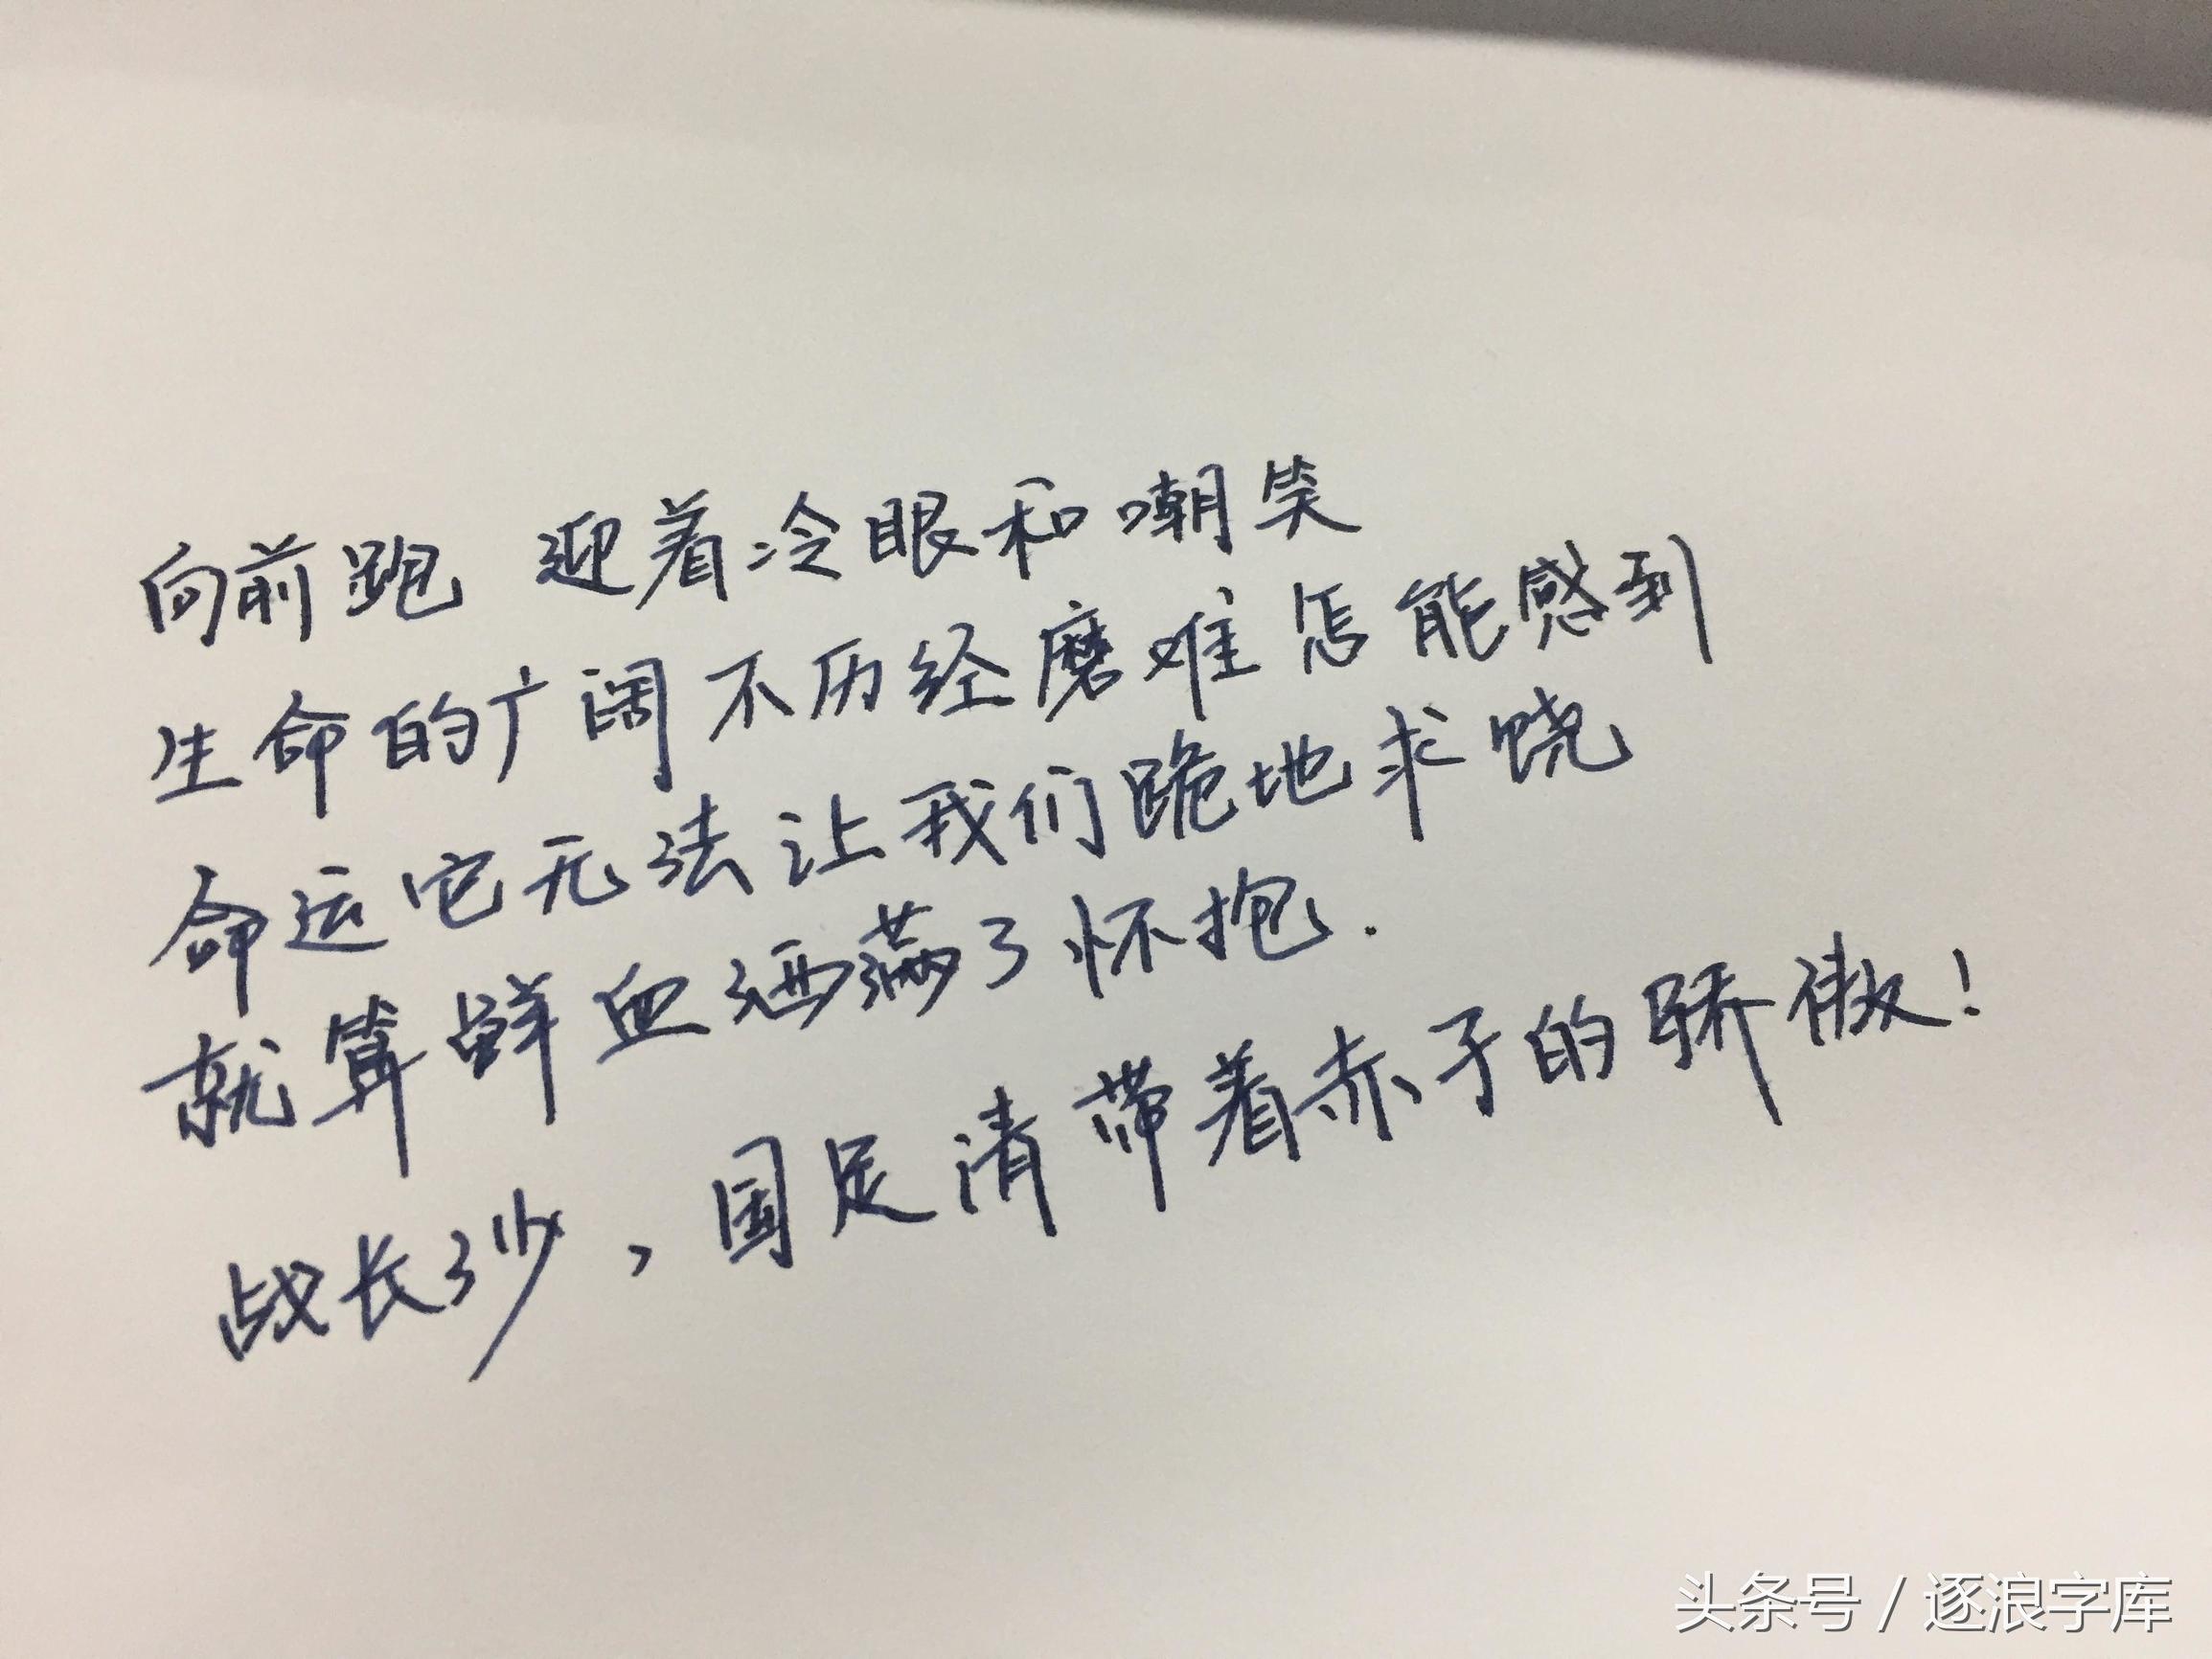 向前跑 迎着冷眼和嘲笑
生命的广阔不历经磨难怎能感到
命运它无法让我们跪地求饶
就算鲜血洒满了怀抱.
战长沙，国足请带着赤子的骄傲！
头条号 / 逐浪字库